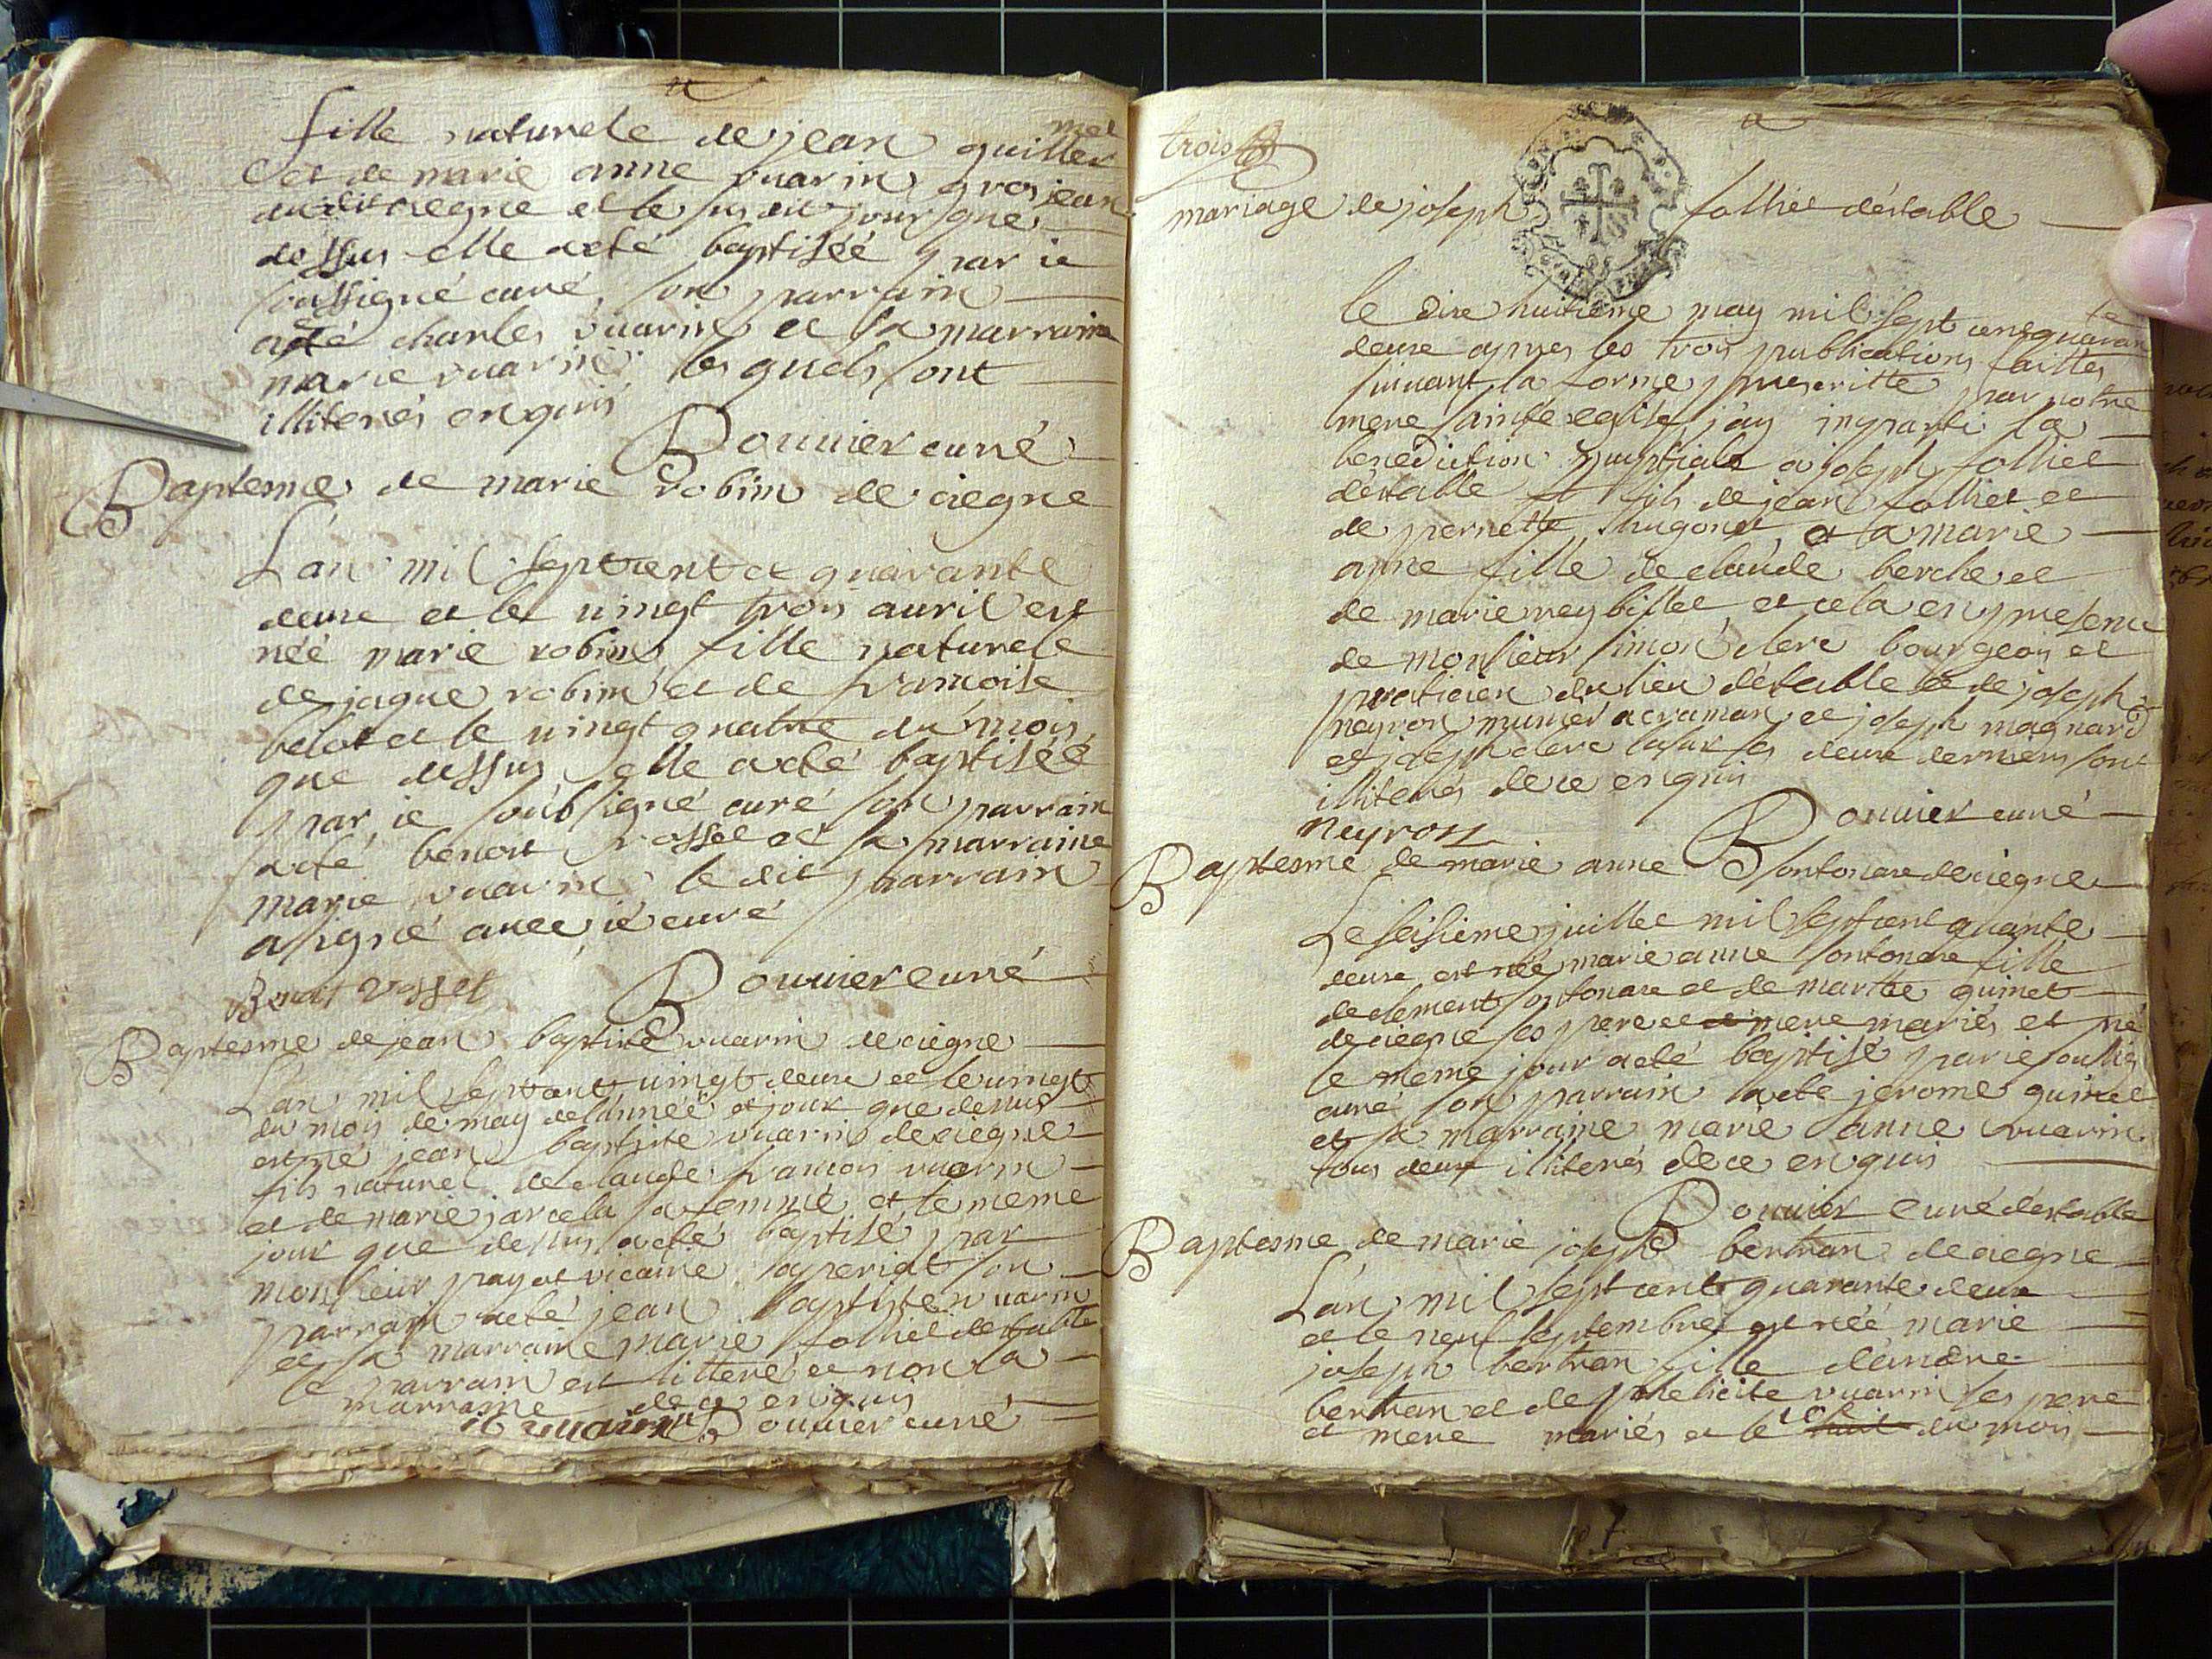 fille naturele de jean guiller
met
et de marie anne vuarin grosjean
dudit ciegne et le jour que
dessus elle aeté baptisée par ie
soussigné curé, son parrain
aeté charles vuarin et sa marraine
marie vuarin les quels sont
illiterés enquis
Bouvier curé
Baptesme de marie robin de ciegne
L'an mil septcent et quarante
deux et le vingt trois auril est
néé marie robin fille naturele
de jaque robin et de francoise
belot et le vingt quatre du mois
que dessus elle aeté baptiséé
par ie soubsigné curé son parrain
aeté benoit rosset et sa marraine
marie vuarin le dit parrain
a signé avec ié curé
Benoit Rosset
Bouvier curé
Baptesme de jean baptiste vuarin de ciegne
L'an mil septcent vingt deux et le vingt
du mois de may de l'annéé et jour que dessus
est né jean baptiste vuarin de ciegne
fils naturel de claude francois vuarin
et de marie jarcela sa femme et le meme
jour que dessus aeté baptisé par
monsieur payot vicaire son
parrain aeté jean baptiste vuarin
et sa marraine marie folliet destable
le parrain est litteré et non la
marraine de ce enquis
vuarin Bouvier curé
trois
mariage de joseph folliet déstable
le dixe huitieme may mil sept cens quaran
te
deux apres les trois publications faittes
suivant la forme prescritte par notre
mere sainte eglise j'ay imparti la
benediction nuptiale a joseph folliet
déstable fils de jean folliet et
de pernette hugonet, et a marie
anne fille de claude berche et
de marie rey billet et cela en presence
de monsieur simon clerc bourgeois et
praticien du lieu déstable et de joseph
neyron munier a craman, et joseph magnard
et joseph clerc les deux derniers sont
illiterés de ce enquis
neyron
Bouvier curé
Baptesme de marie anne fontonare de ciegne
Le seisieme juillet mil septcent quante
deux est néé marie anne fontonare fille
de clement fontonare et de marthe guinet
de ciegne ses pere et mere mariés et né
le meme jour aeté baptisé par ie soussig
curé son parrain aeté jerome guinet
et sa marraine marie anne vuarin
tous deux illiterés de ce enquis
Bouvier curé déstable
Baptesme de marie joseph bertran de ciegne
L'an mil septcent quarante deux
et le neuf septembre est néé marie
joseph bertran fille d'andre
bertran et de phelicite vuarin ses pere
et mere mariés et le 10 huit du mois